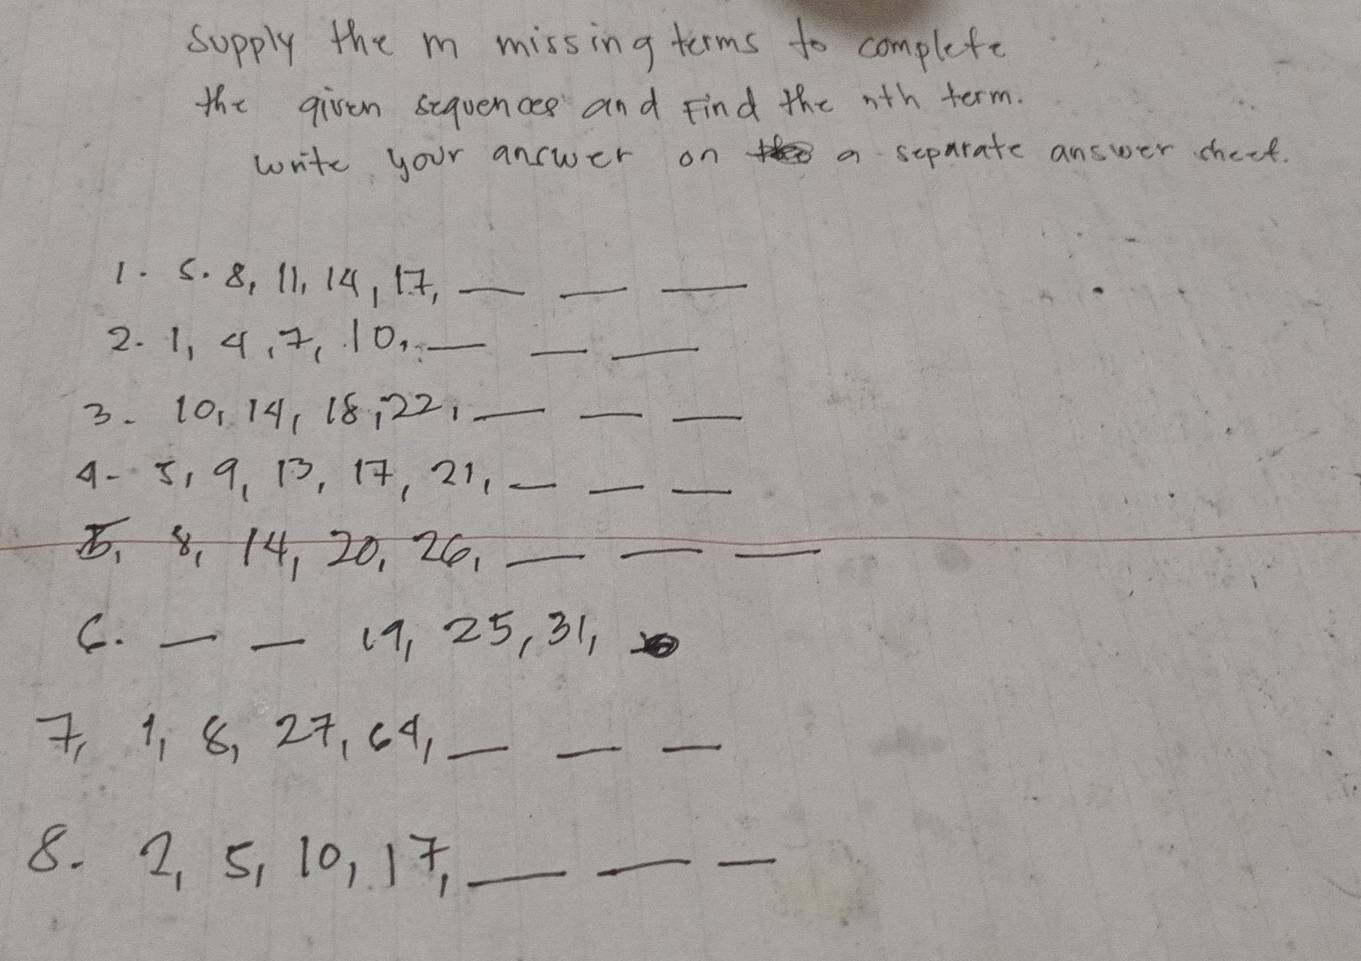 Supply the m missing terms to complete
the given sequences and Find the nth term.
write your answer on a separate answer sheet.
1. 5. 8, 11, 14, 17, __ __ __
2. 1, 4, 7, 10, __ __ __
3. 10, 14, 18, 22, __ __ __
4. 5, 9, 13, 17, 21, __ __ __
5, 8, 14, 20, 26, __ __ __
6. __ __ 19, 25, 31,
7, 1, 8, 27, 64, __ __ __
8. 2, 5, 10, 17, __ __ __